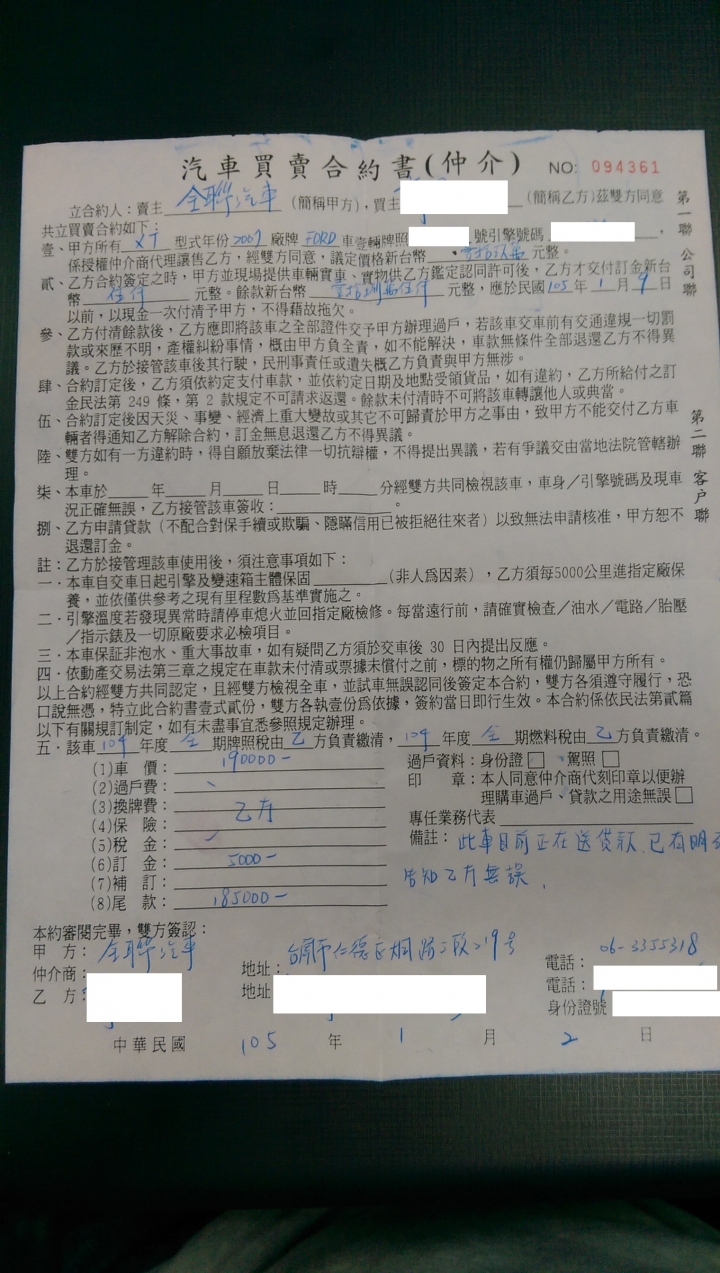 汽車買賣合約書(仲介) NO: 094361
立合約人：賣主 全聯汽車 (簡稱甲方)，買主 (簡稱乙方)茲雙方同意
共立買賣合約如下：
壹、甲方所有 型式年份 2007 廠牌 FORD 車壹輛牌照 號引擎號碼 ，
係授權仲介商代理讓售乙方，經雙方同意，議定價格新台幣 壹拾玖萬 元整。
貳、乙方合約簽定之時，甲方並現場提供車輛實車、實物供乙方鑑定認同許可後，乙方才交付訂金新台
幣 伍仟 元整。餘款新台幣 壹拾捌萬伍仟 元整，應於民國 105 年 1 月 9 日
以前，以現金一次付清予甲方，不得藉故拖欠。
參、乙方付清餘款後，乙方應即將該車之全部證件交予甲方辦理過戶，若該車交車前有交通違規一切罰
款或來歷不明，產權糾紛事情，概由甲方負全責，如不能解決，車款無條件全部退還乙方不得異
議。乙方於接管該車後其行駛，民刑事責任或遺失概乙方負責與甲方無涉。
肆、合約訂定後，乙方須依約定支付車款，並依約定日期及地點受領貨品，如有違約，乙方所給付之訂
金民法第 249 條，第 2 款規定不可請求返還。餘款未付清時不可將該車轉讓他人或典當。
伍、合約訂定後因天災、事變、經濟上重大變故或其它不可歸責於甲方之事由，致甲方不能交付乙方車
輛者得通知乙方解除合約，訂金無息退還乙方不得異議。
陸、雙方如有一方違約時，得自願放棄法律一切抗辯權，不得提出異議，若有爭議交由當地法院管轄辦
理。
柒、本車於 年 月 日 時 分經雙方共同檢視該車，車身／引擎號碼及現車
況正確無誤，乙方接管該車簽收： 。
捌、乙方申請貸款（不配合對保手續或欺騙、隱瞞信用已被拒絕往來者）以致無法申請核准，甲方恕不
退還訂金。
註：乙方於接管理該車使用後，須注意事項如下：
一．本車自交車日起引擎及變速箱主體保固 （非人為因素），乙方須每5000公里進指定廠保
養，並依僅供參考之現有里程數為基準實施之。
二．引擎溫度若發現異常時請停車熄火並回指定廠檢修。每當遠行前，請確實檢查／油水／電路／胎壓
／指示錶及一切原廠要求必檢項目。
三．本車保証非泡水、重大事故車，如有疑問乙方須於交車後 30 日內提出反應。
四．依動產交易法第三章之規定在車款未付清或票據未償付之前，標的物之所有權仍歸屬甲方所有。
以上合約經雙方共同認定，且經雙方檢視全車，並試車無誤認同後簽定本合約，雙方各須遵守履行，恐
口說無憑，特立此合約書壹式貳份，雙方各執壹份為依據，簽約當日即行生效。本合約係依民法第貳篇
以下有關規訂制定，如有未盡事宜悉參照規定辦理。
五．該車 104 年度 全 期牌照稅由 乙 方負責繳清，104 年度 全 期燃料稅由 乙 方負責繳清。
(1)車 價： 190000-
(2)過戶費：
(3)換牌費： 乙方
(4)保 險：
(5)稅 金：
(6)訂 金： 5000-
(7)補 訂：
(8)尾 款： 185000-
過戶資料：身份證 駕照
印 章：本人同意仲介商代刻印章以便辦
理購車過戶、貸款之用途無誤
專任業務代表
備註：此車目前正在送貸款、已有明
告知乙方無誤、
第一聯 公司聯
第二聯 客戶聯
本約審閱完畢，雙方簽認：
甲 方：全聯汽車 電話：06-3355318
仲介商： 地址： 電話：
乙 方： 地址 身份證號
中華民國 105 年 1 月 2 日